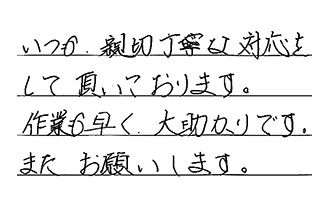 いつも、親切丁寧な対応を
して頂いております。
作業も早く、大助かりです。
また お願いします。